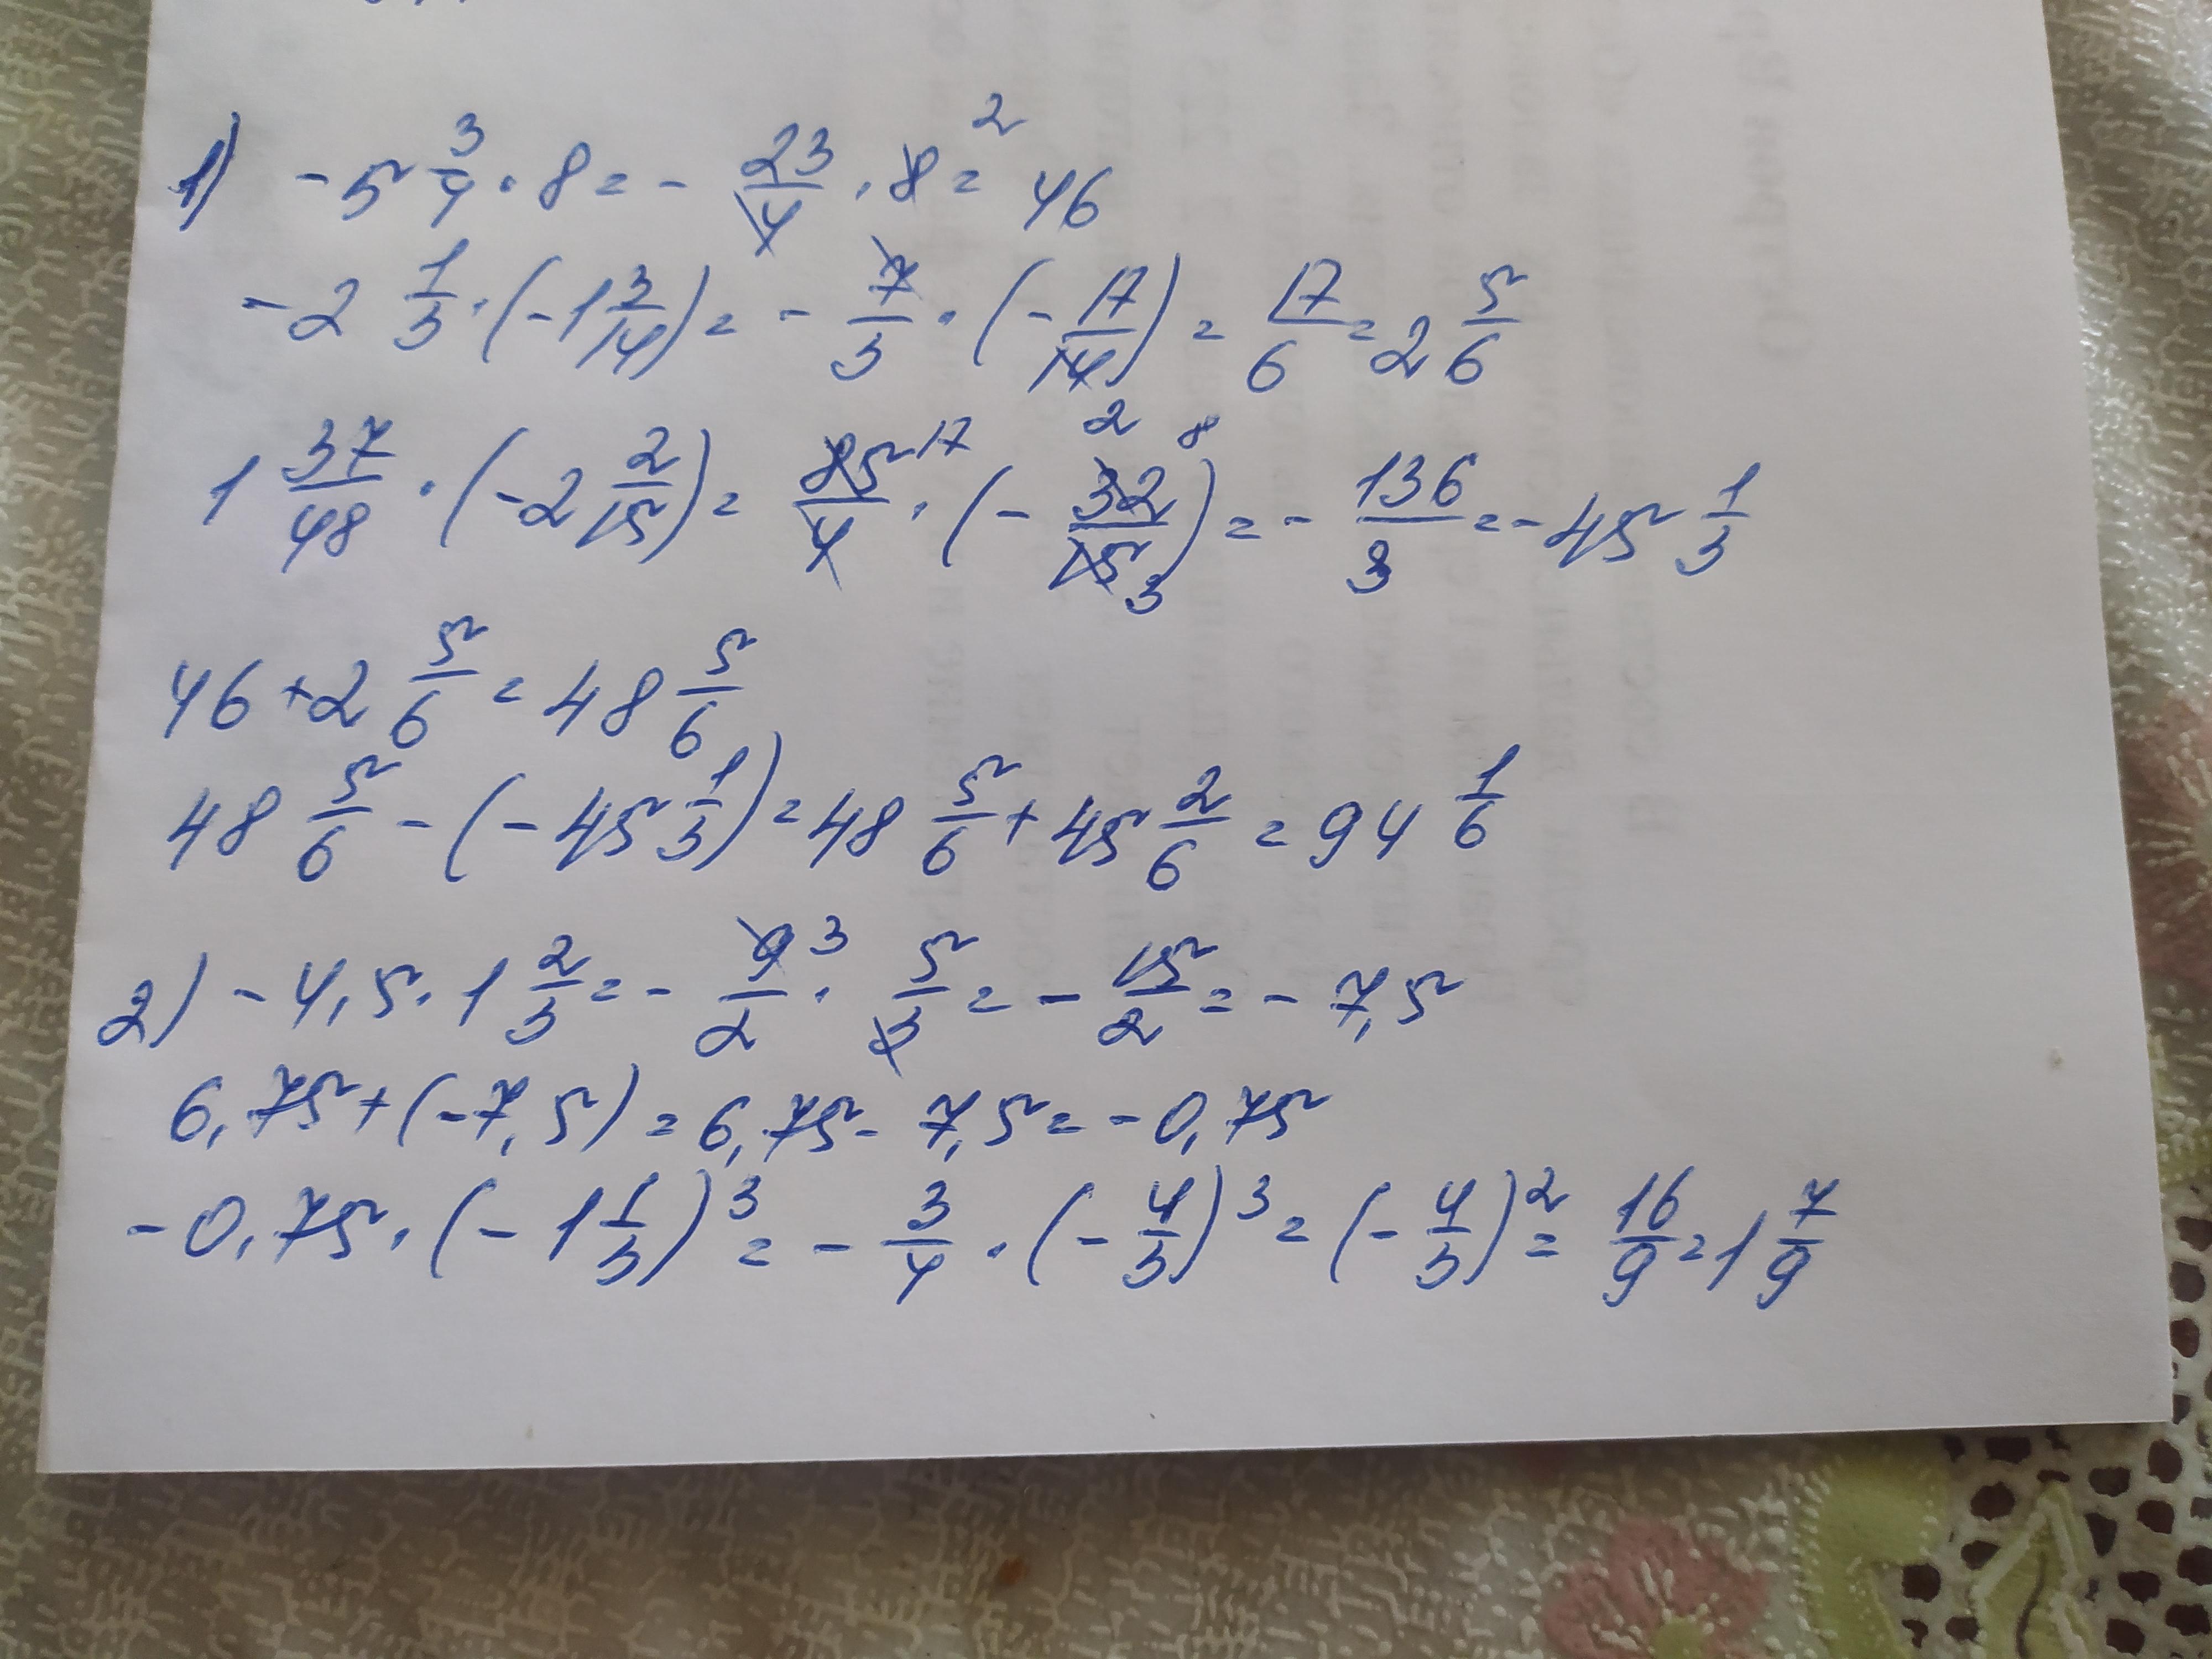 1) -5 3/4 · 8 = - 23/4 · 8 2 = 46
-2 1/3 · (-1 3/14) = - 7/3 · (- 17/14 2) = 17/6 = 2 5/6
1 37/48 · (-2 2/15) = 85 17/4 · (- 32 8/15 3) = - 136/3 = - 45 1/3
46 + 2 5/6 = 48 5/6
48 5/6 - (- 45 1/3) = 48 5/6 + 45 2/6 = 94 1/6
2) -4,5 · 1 2/3 = - 9 3/2 · 5/3 = - 15/2 = - 7,5
6,75 + (-7,5) = 6,75 - 7,5 = - 0,75
- 0,75 · (- 1 1/3)³ = - 3/4 · (- 4/3)³ = (- 4/3)² = 16/9 = 1 7/9